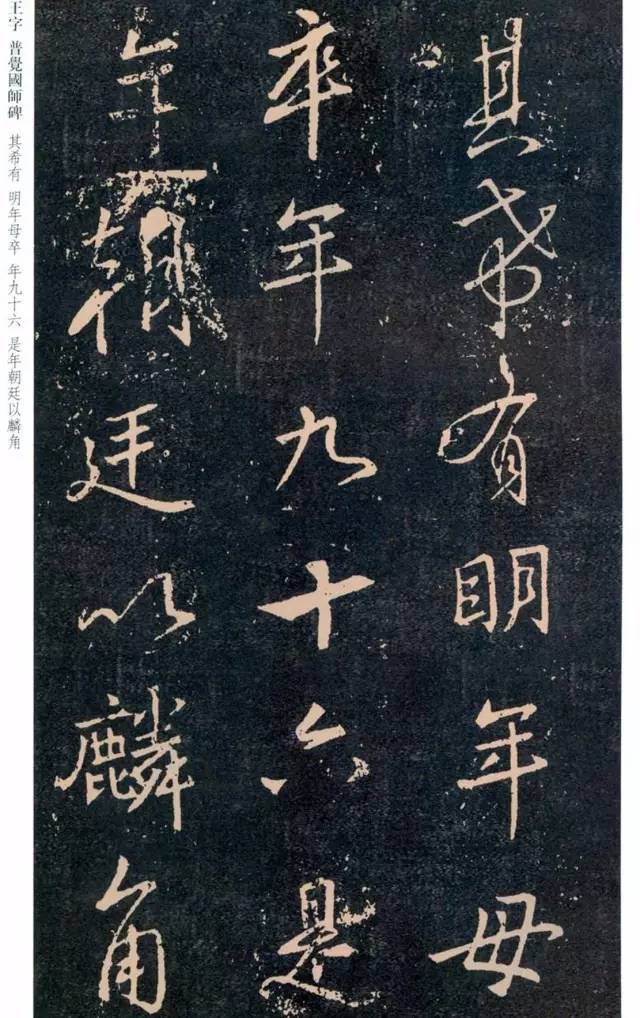 其希有明年母
卒年九十六是
年朝廷以麟角
王字 普覺國師碑 其希有 明年母卒 年九十六 是年朝廷以麟角